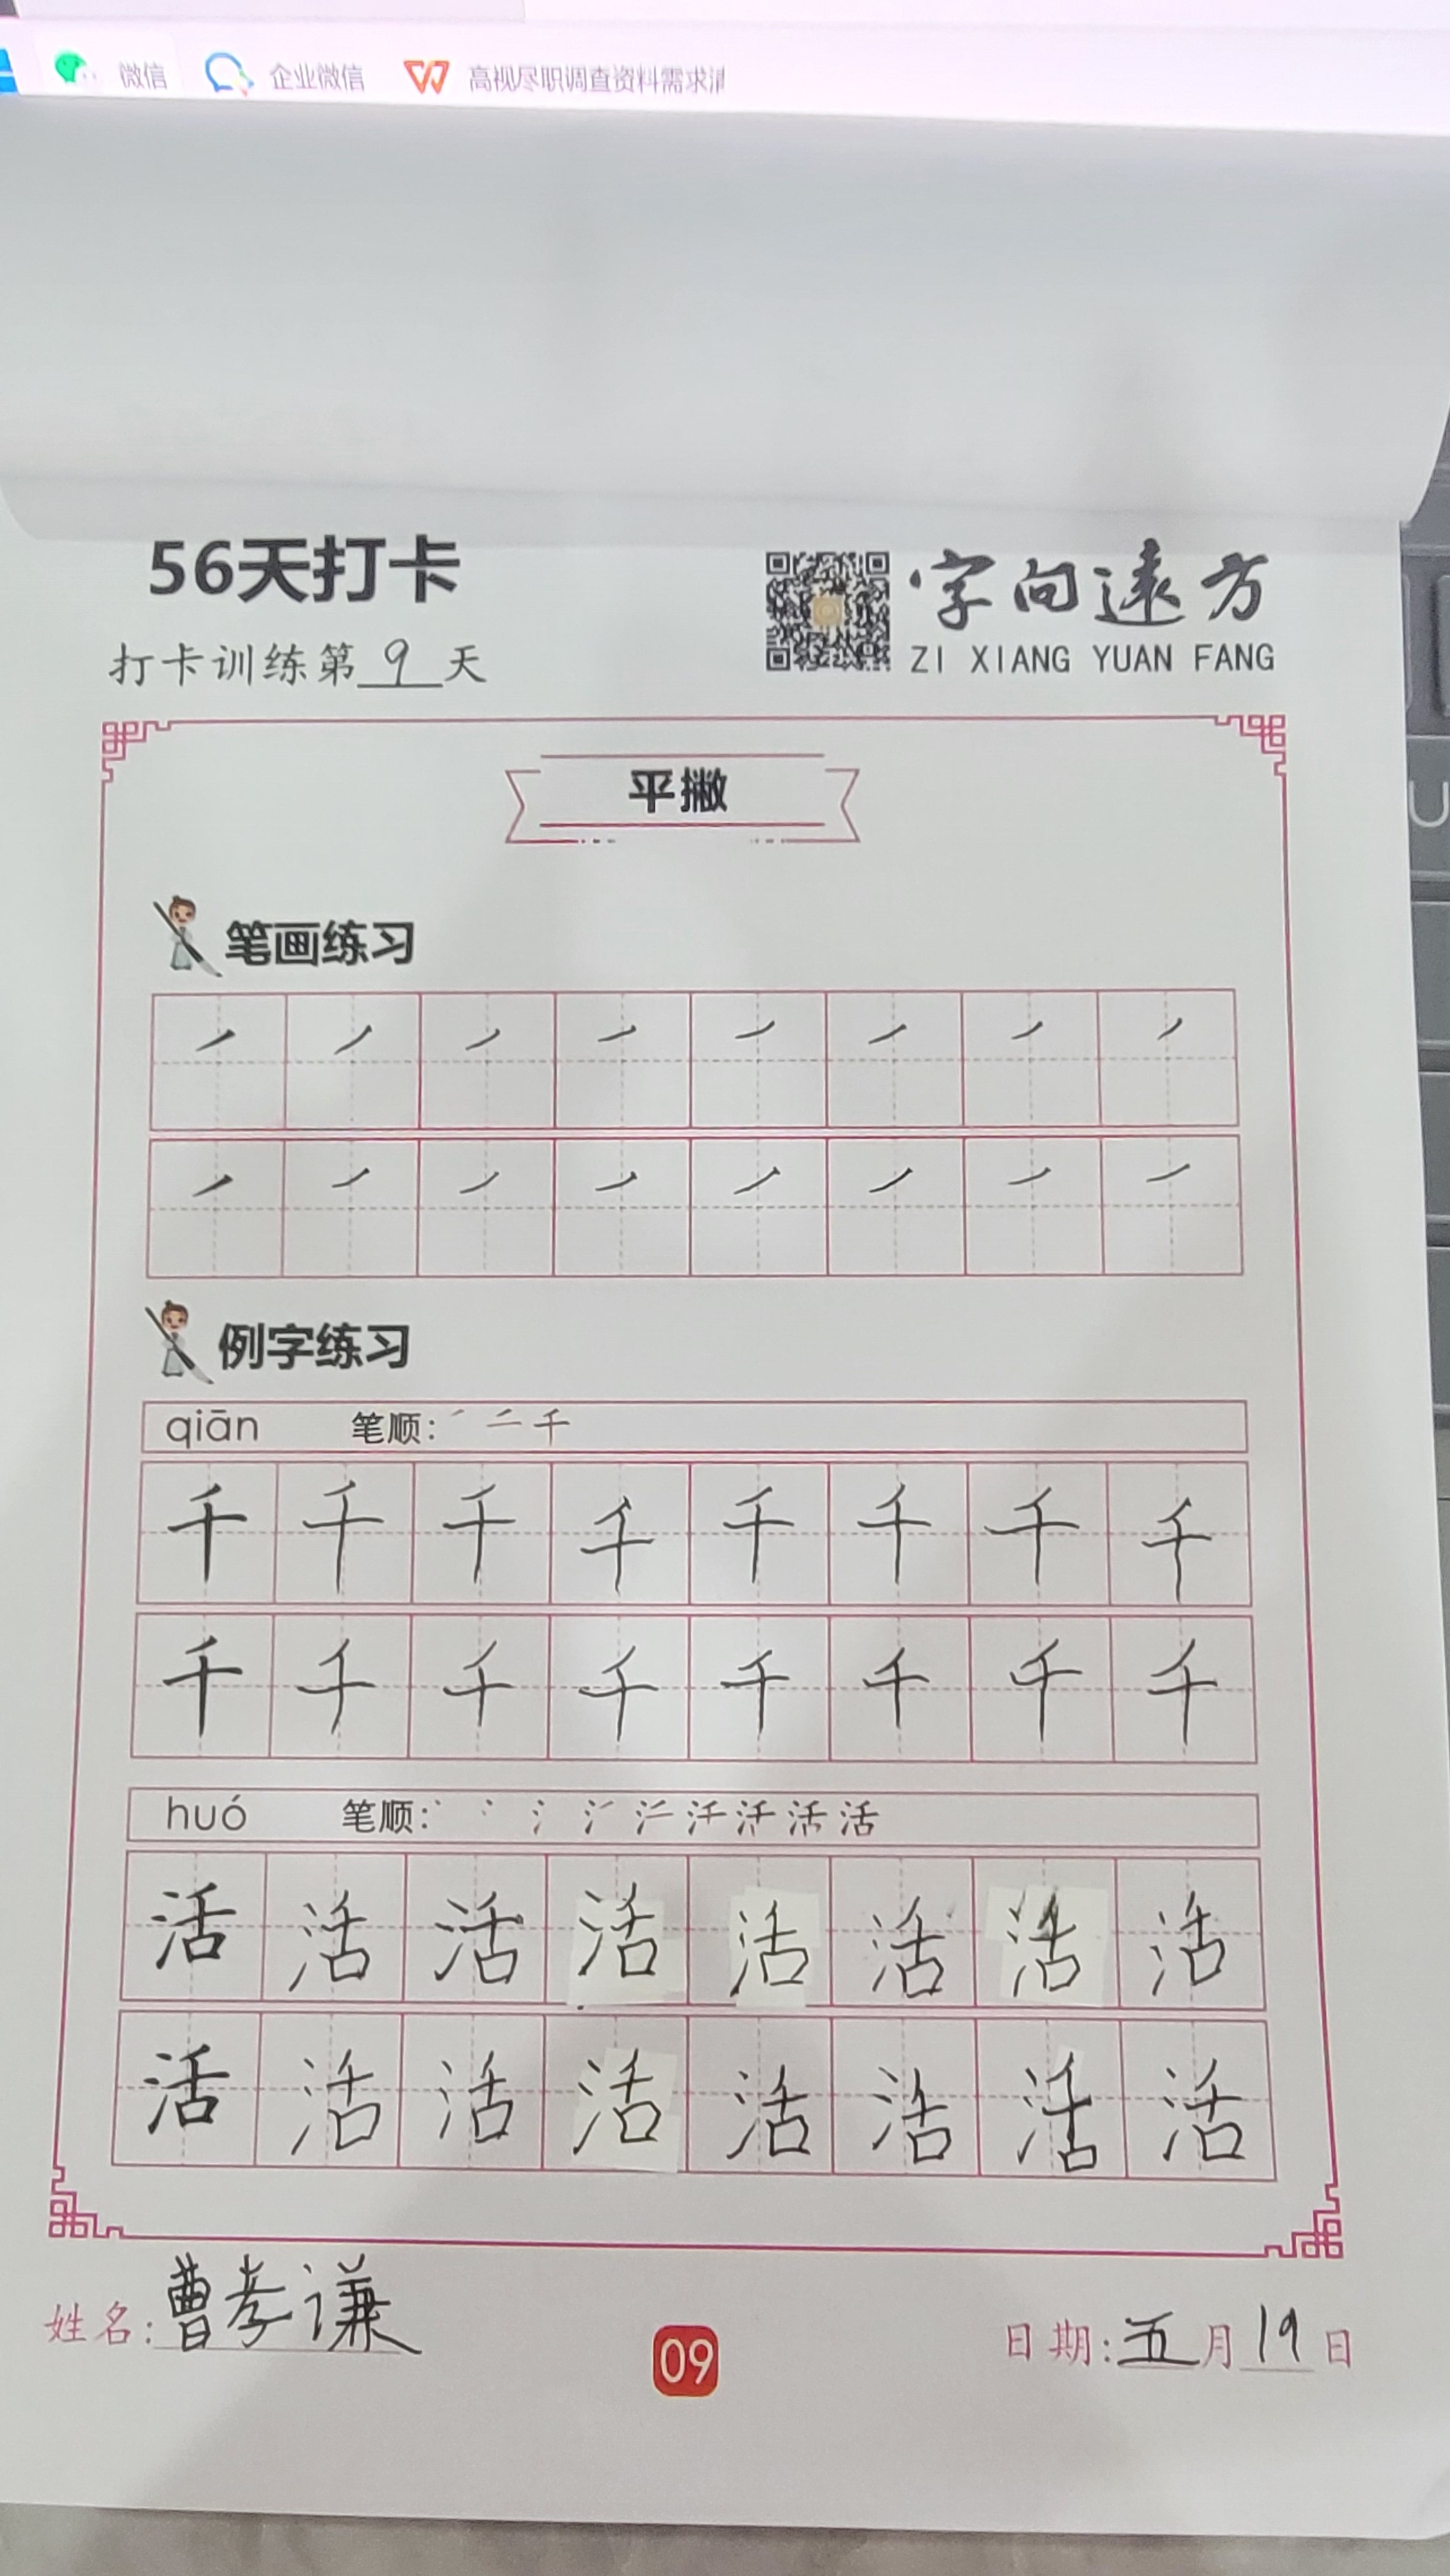 微信 企业微信 高视尽职调查资料需求清
56天打卡
字向遠方
打卡训练第9天
ZI XIANG YUAN FANG
U
平撇
笔画练习
例字练习
qiān 笔顺:
千千千千千千千千
千千千千千千千千
huó 笔顺:
活活活活活活活活
活活活活活活活活
姓名:曹孝谦
09
日期:五月19日